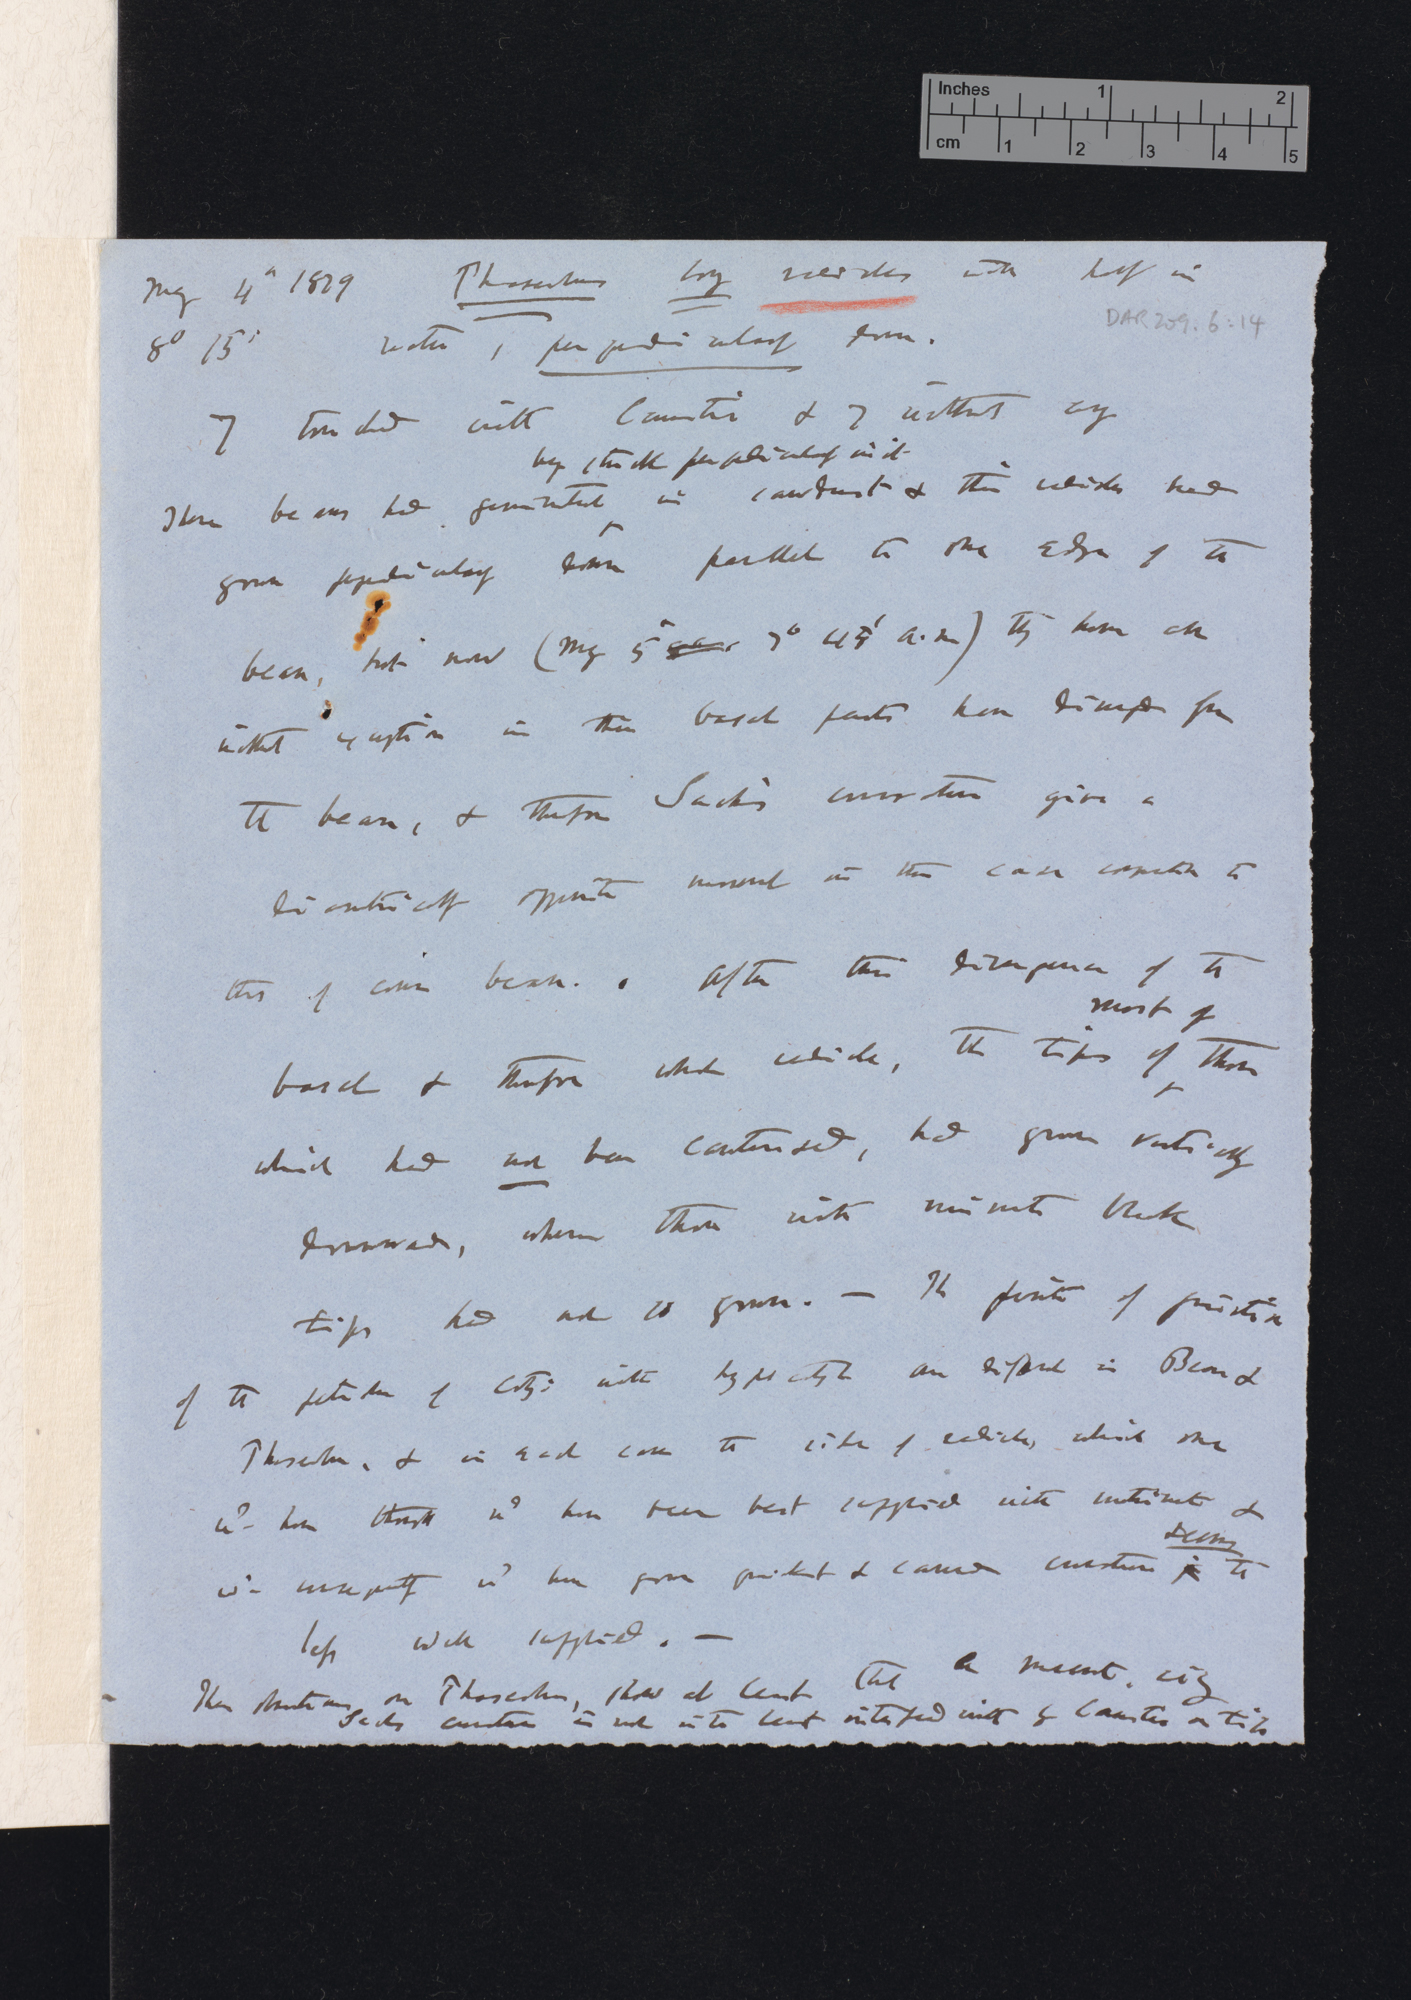 Inches 1 2
cm 1 2 3 4 5
May 4th 1879 Phaseolus long radicles with half in
DAR 209.6:14
8° 15' water, perpendicularly down.
7 touched with Caustic & 7 without any
stuck perpendicularly in it
These beans had germinated in sawdust & their radicles had
grown perpendicularly down parallel to one edge of the
bean, but now (May 5th 7° 45' a.m) they have all
without exception in their basal parts have diverged from
the bean, & therefore Sachs's curvature give a
diametrically opposite movement in this case
this of common bean. After this divergence of the
most of
basal & therefore whole radicle, the tips of those
which had not been cauterised, had grown vertically
downwards, whereas those with minute black
tips had not so grown. — The points of junction
of the petioles of Coty: with hypocotyl are different in Bean &
Phaseolus, & in each case the side of radicle, which one
wd. have thought wd have been best supplied with nutriment &
wd. consequently wd have grown quickest & caused curvature to
less well supplied. —
These observations on Phaseolus, show at least that
Sachs curvature is not in the least interfered with by Caustic on tips